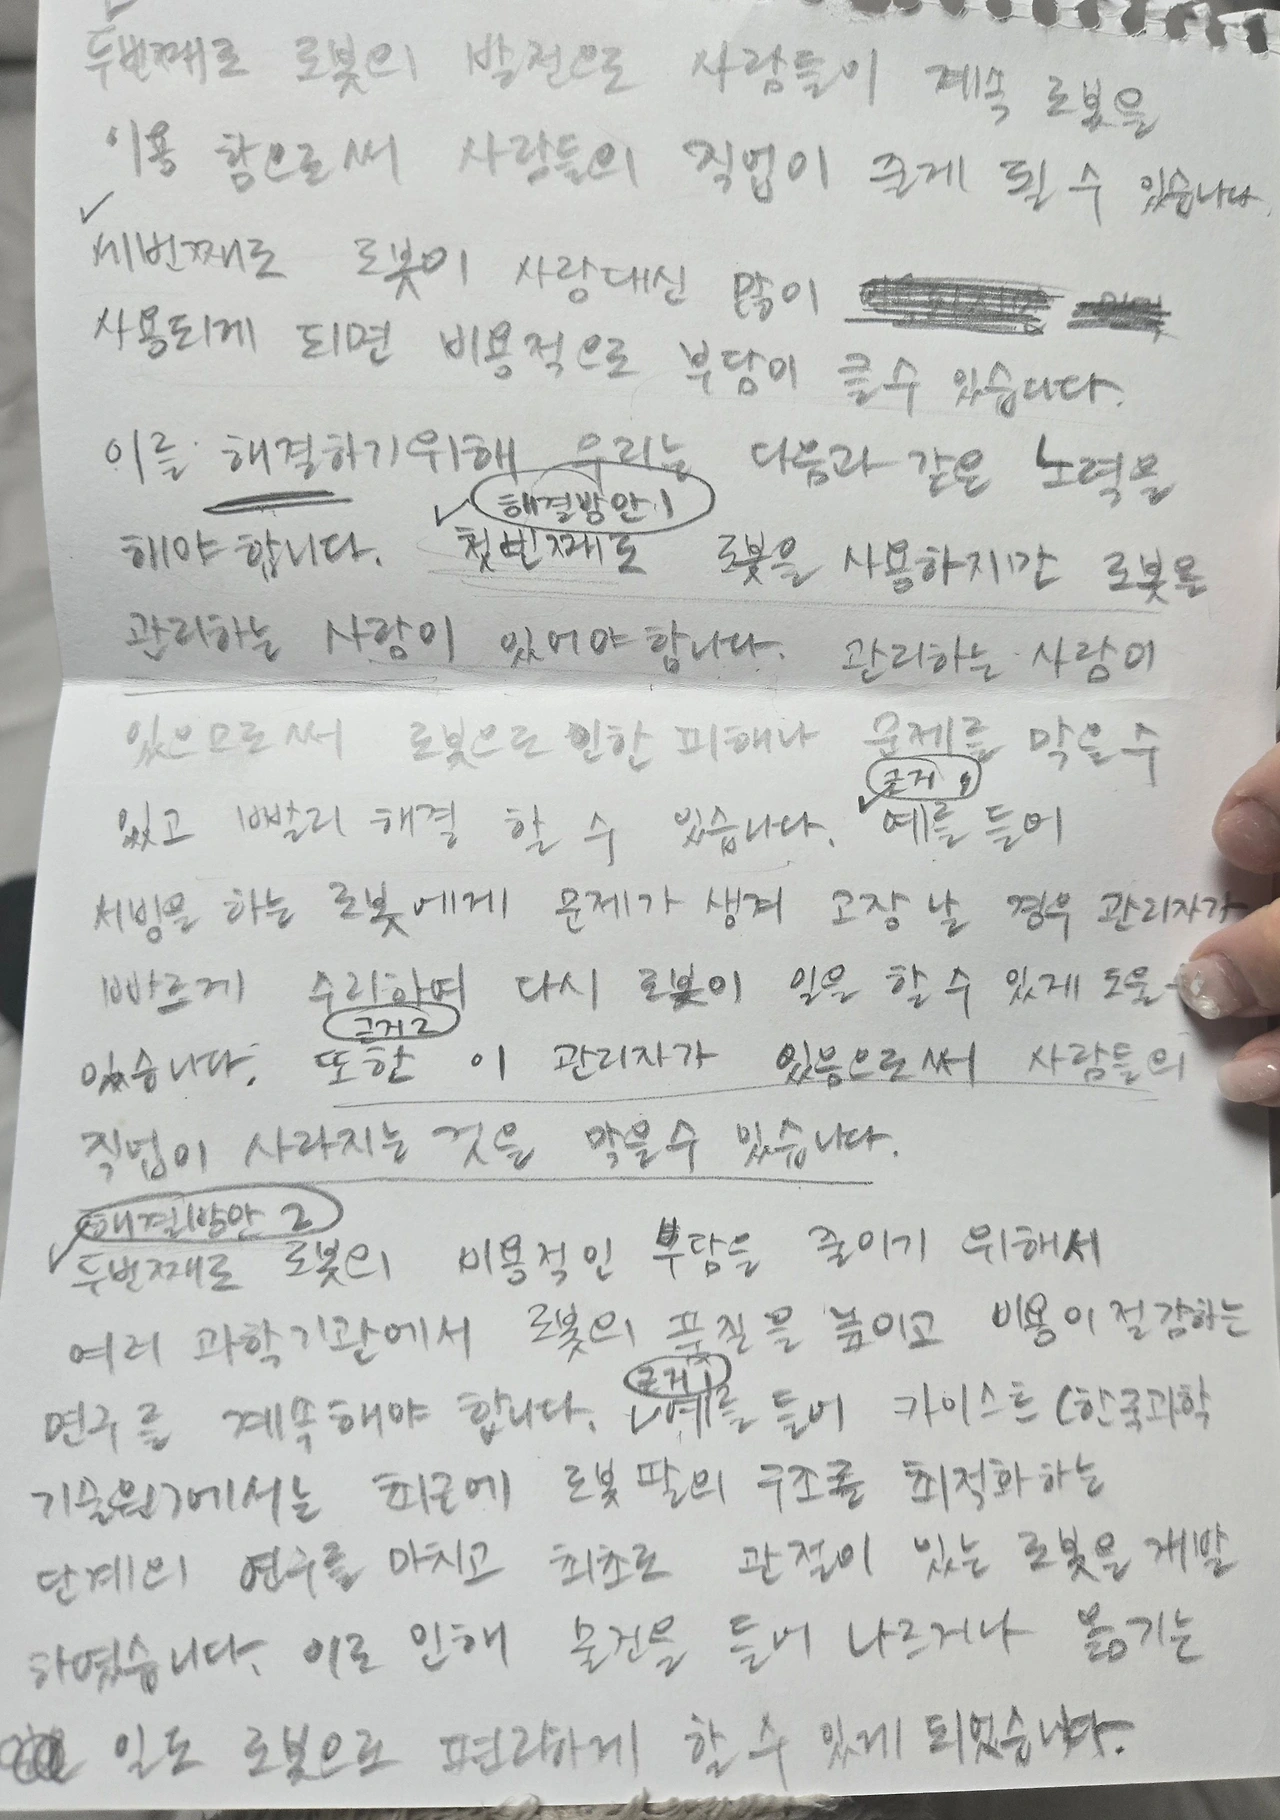 두번째로 로봇의 발전으로 사람들이 계속 로봇을
이용 함으로써 사람들의 직업이 줄게 될 수 있습니다.
세번째로 로봇이 사람대신 많이
사용되게 되면 비용적으로 부담이 클수 있습니다.
이를 해결하기위해 우리는 다음과 같은 노력을
해결방안 1
해야 합니다. 첫번째로 로봇을 사용하지만 로봇을
관리하는 사람이 있어야 합니다. 관리하는 사람이
있으므로써 로봇으로 인한 피해나 문제를 막을 수
근거 1
있고 빨리 해결 할 수 있습니다. 예를 들어
서빙을 하는 로봇에게 문제가 생겨 고장 날 경우 관리자가
빠르게 수리하며 다시 로봇이 일을 할 수 있게 도울 수
근거 2
있습니다. 또한 이 관리자가 있음으로써 사람들의
직업이 사라지는 것을 막을 수 있습니다.
해결방안 2
두번째로 로봇의 비용적인 부담을 줄이기 위해서
여러 과학기관에서 로봇의 품질을 높이고 비용이 절감하는
근거 1
연구를 계속해야 합니다. 예를 들어 카이스트(한국과학
기술원)에서는 최근에 로봇 팔의 구조를 최적화 하는
단계의 연구를 마치고 최초로 관절이 있는 로봇을 개발
하였습니다. 이로 인해 물건을 들어 나르거나 옮기는
일도 로봇으로 편리하게 할 수 있게 되었습니다.